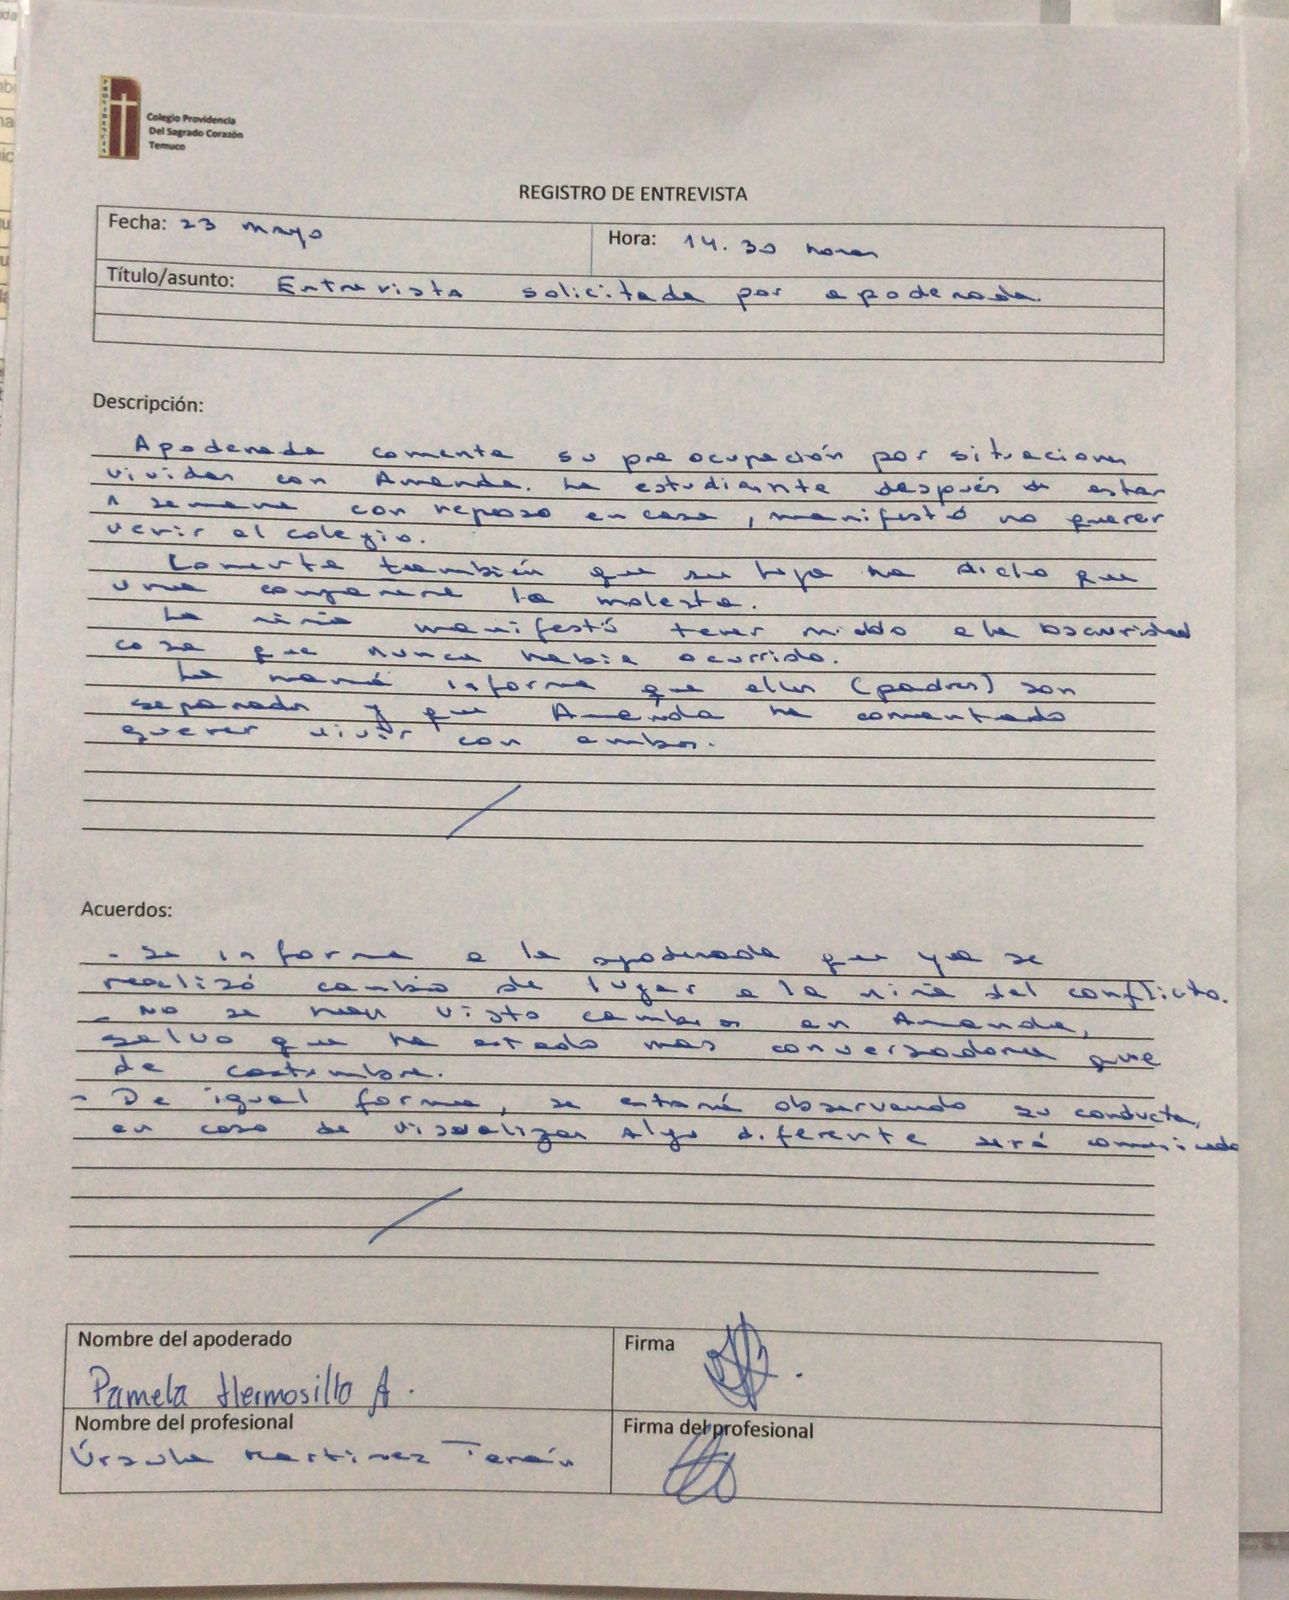 PROVIDENCIA
Colegio Providencia
Del Sagrado Corazón
Temuco
REGISTRO DE ENTREVISTA
Fecha: 23 mayo
Hora: 14.30 horas
Título/asunto: Entrevista solicitada por apoderada.
Descripción:
Apoderada comenta su preocupación por situaciones
vividas con Amanda. La estudiante después de estar
1 semana con reposo en casa, manifestó no querer
venir al colegio.
Comenta también que su hija ha dicho que
una compañera la molesta.
La niña manifestó tener miedo a la oscuridad
cosa que nunca había ocurrido.
La mamá informa que ellos (padres) son
separados y que Amanda ha comentado
querer vivir con ambos.
Acuerdos:
- Se informa a la apoderada que ya se
realizó cambio de lugar a la niña del conflicto.
- No se han visto cambios en Amanda,
salvo que ha estado más conversadora que
de costumbre.
- De igual forma, se estará observando su conducta,
en caso de visualizar algo diferente será comunicado
Nombre del apoderado
Firma
Pamela Hermosilla A.
Nombre del profesional
Firma del profesional
Úrsula Martínez Terán